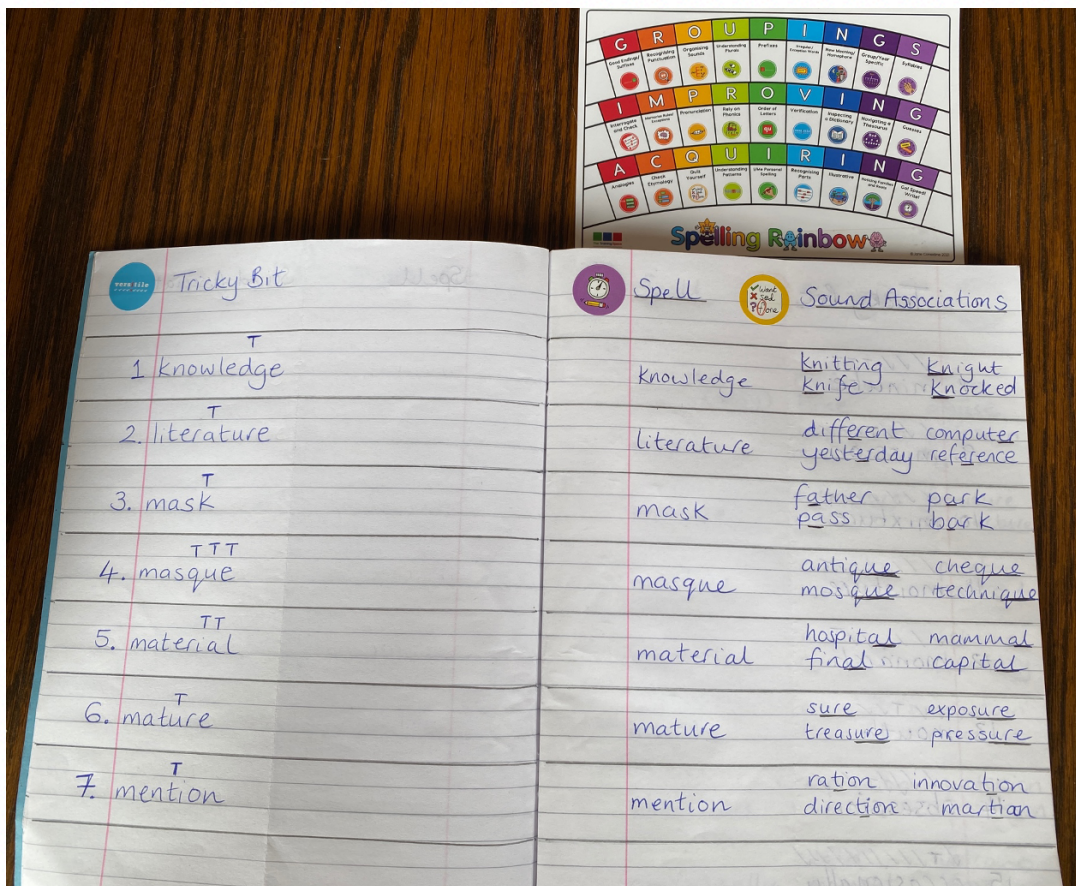 G R O U P I N G S
Good Endings/ Suffixes
Recognising Punctuation
Organising Sounds
Understanding Plurals
Prefixes
Irregular/ Exception Words
New Meaning/ Homophone
Group/Year Specific
Syllables
I M P R O V I N G
Interrogate and Check
Pronunciation
Rely on Phonics
Order of Letters
Verification
Inspecting a Dictionary
Navigating a Thesaurus
Guesses
A C Q U I R I N G
Analogies
Check Etymology
Quiz Yourself
Understanding Patterns
Use Personal Spelling
Recognising Parts
Illustrative
Got Speed? Write!
Spelling Rainbow
Tricky Bit
T
1 knowledge
T
2. literature
T
3. mask
T T T
4. masque
T T
5. material
T
6. mature
T
7. mention
Spell
Want
sed
Sound Associations
knowledge knitting knight
knife knocked
literature different computer
yesterday reference
mask father park
pass bark
masque antique cheque
mosque technique
material hospital mammal
final capital
mature sure exposure
treasure pressure
mention ration innovation
direction martian